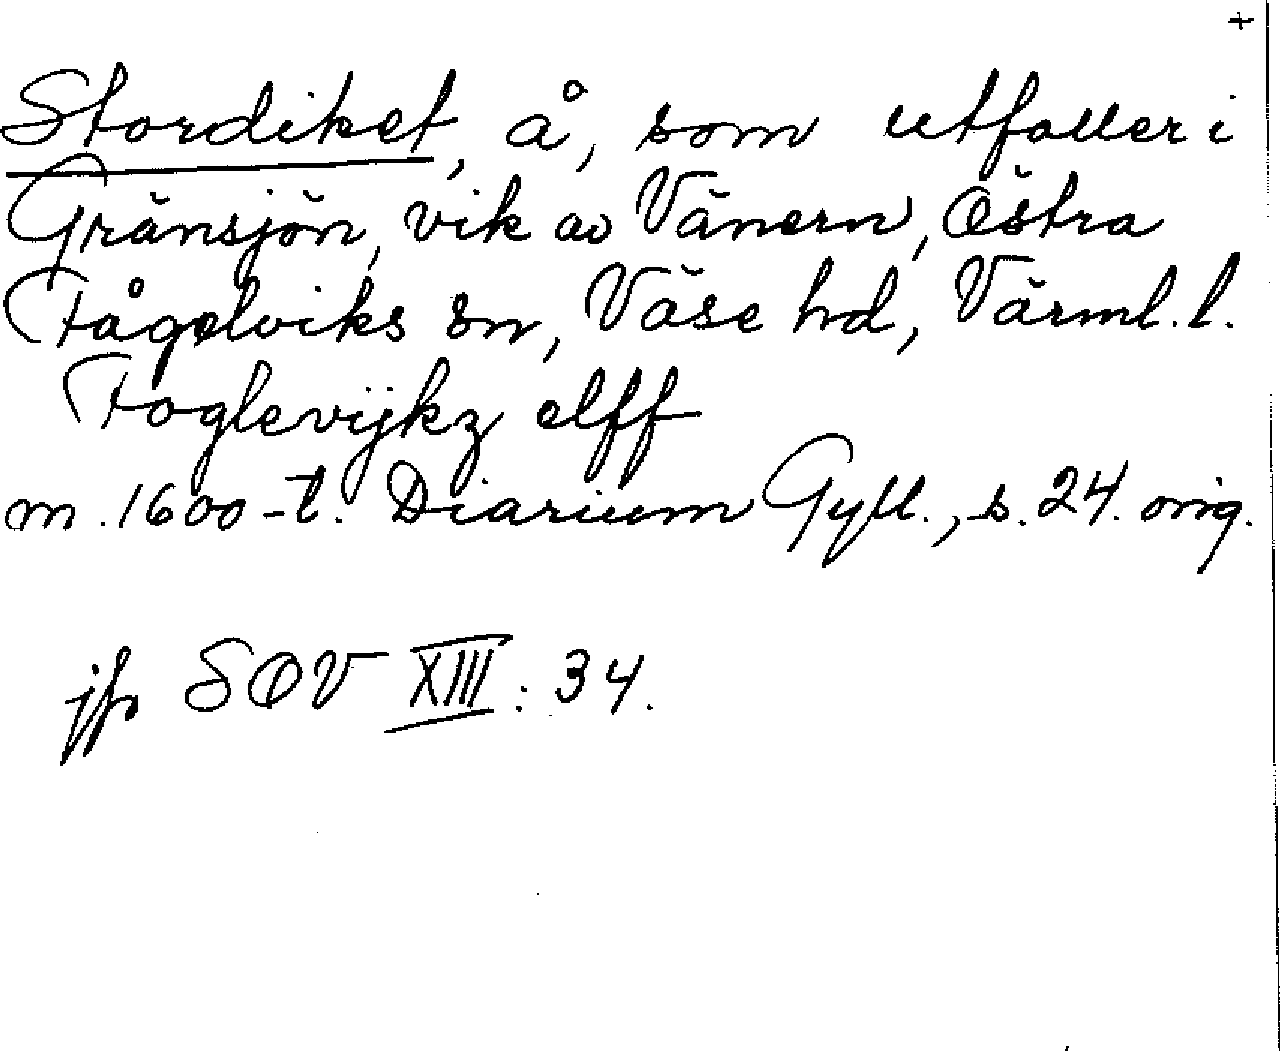 +
Stordiket, å, som utfaller i
Gränsjön, vik av Vänern, Östra
Fågelviks sn, Väse hd, Värml. l.
Foglevijkz elff
m. 1600-t. Diarium Gyll., s. 24. orig.
jfr SOV XIII: 34.